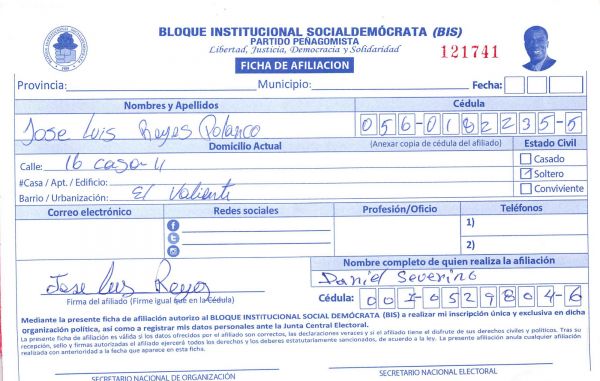 BLOQUE INSTITUCIONAL SOCIALDEMÓCRATA (BIS)
PARTIDO PEÑAGOMISTA
Libertad, Justicia, Democracia y Solidaridad
121741
FICHA DE AFILIACION
Provincia: Municipio: Fecha:
Nombres y Apellidos Cédula
Jose Luis Reyes Polanco 056-0182235-5
Domicilio Actual (Anexar copia de cédula del afiliado) Estado Civil
Calle: 16 casa-4 Casado
#Casa / Apt. / Edificio: Soltero
Barrio / Urbanización: El Valiente Conviviente
Correo electrónico Redes sociales Profesión/Oficio Teléfonos
1)
2)
Nombre completo de quien realiza la afiliación
Jose Luis Reyes Daniel Severino
Firma del afiliado (Firme igual que en la Cédula) Cédula: 001-0529804-6
Mediante la presente ficha de afiliación autorizo al BLOQUE INSTITUCIONAL SOCIAL DEMÓCRATA (BIS) a realizar mi inscripción única y exclusiva en dicha
organización política, así como a registrar mis datos personales ante la Junta Central Electoral.
La presente ficha de afiliación es válida si los datos ofrecidos por el afiliado son correctos, las declaraciones veraces y si el afiliado tiene el disfrute de sus derechos civiles y políticos. Tras su
recepción, sello y firmas autorizadas el afiliado ejercerá todos los derechos y los deberes estatutariamente sancionados, de acuerdo a la ley. La presente afiliación anula cualquier afiliación
realizada con anterioridad a la fecha que aparece en esta ficha.
SECRETARIO NACIONAL DE ORGANIZACIÓN SECRETARIO NACIONAL ELECTORAL